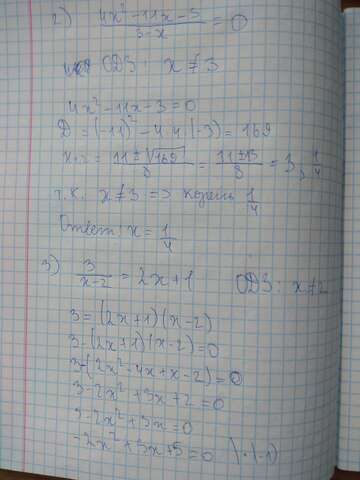 2) (4x² - 11x - 3)/(3 - x) = 0
ОДЗ: x ≠ 3
4x² - 11x - 3 = 0
D = (-11)² - 4·4·(-3) = 169
x₁,₂ = (11 ± √169)/8 = (11 ± 13)/8 = 3, 1/4
т.к. x ≠ 3 => корень 1/4
Ответ: x = 1/4
3) 3/(x-2) = 2x + 1 ОДЗ: x ≠ 2
3 = (2x+1)(x-2)
3 - (2x+1)(x-2) = 0
3 - (2x² - 4x + x - 2) = 0
3 - 2x² + 3x + 2 = 0
-2x² + 3x + 5 = 0 | · (-1)